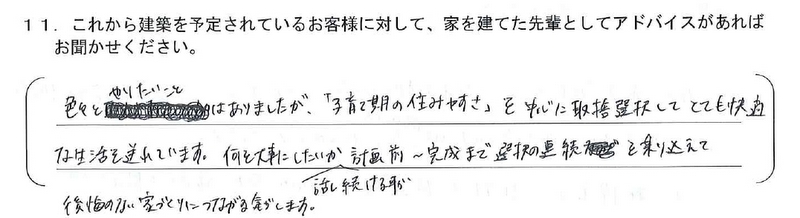 １１．これから建築を予定されているお客様に対して、家を建てた先輩としてアドバイスがあれば
お聞かせください。
色々とやりたいことはありましたが、「子育て期の住みやすさ」を中心に取捨選択してとても快適
な生活を送れています。何を大事にしたいか計画前～完成まで選択の連続を乗り込えて
話し続ける事が
後悔のない家づくりにつながる気がします。